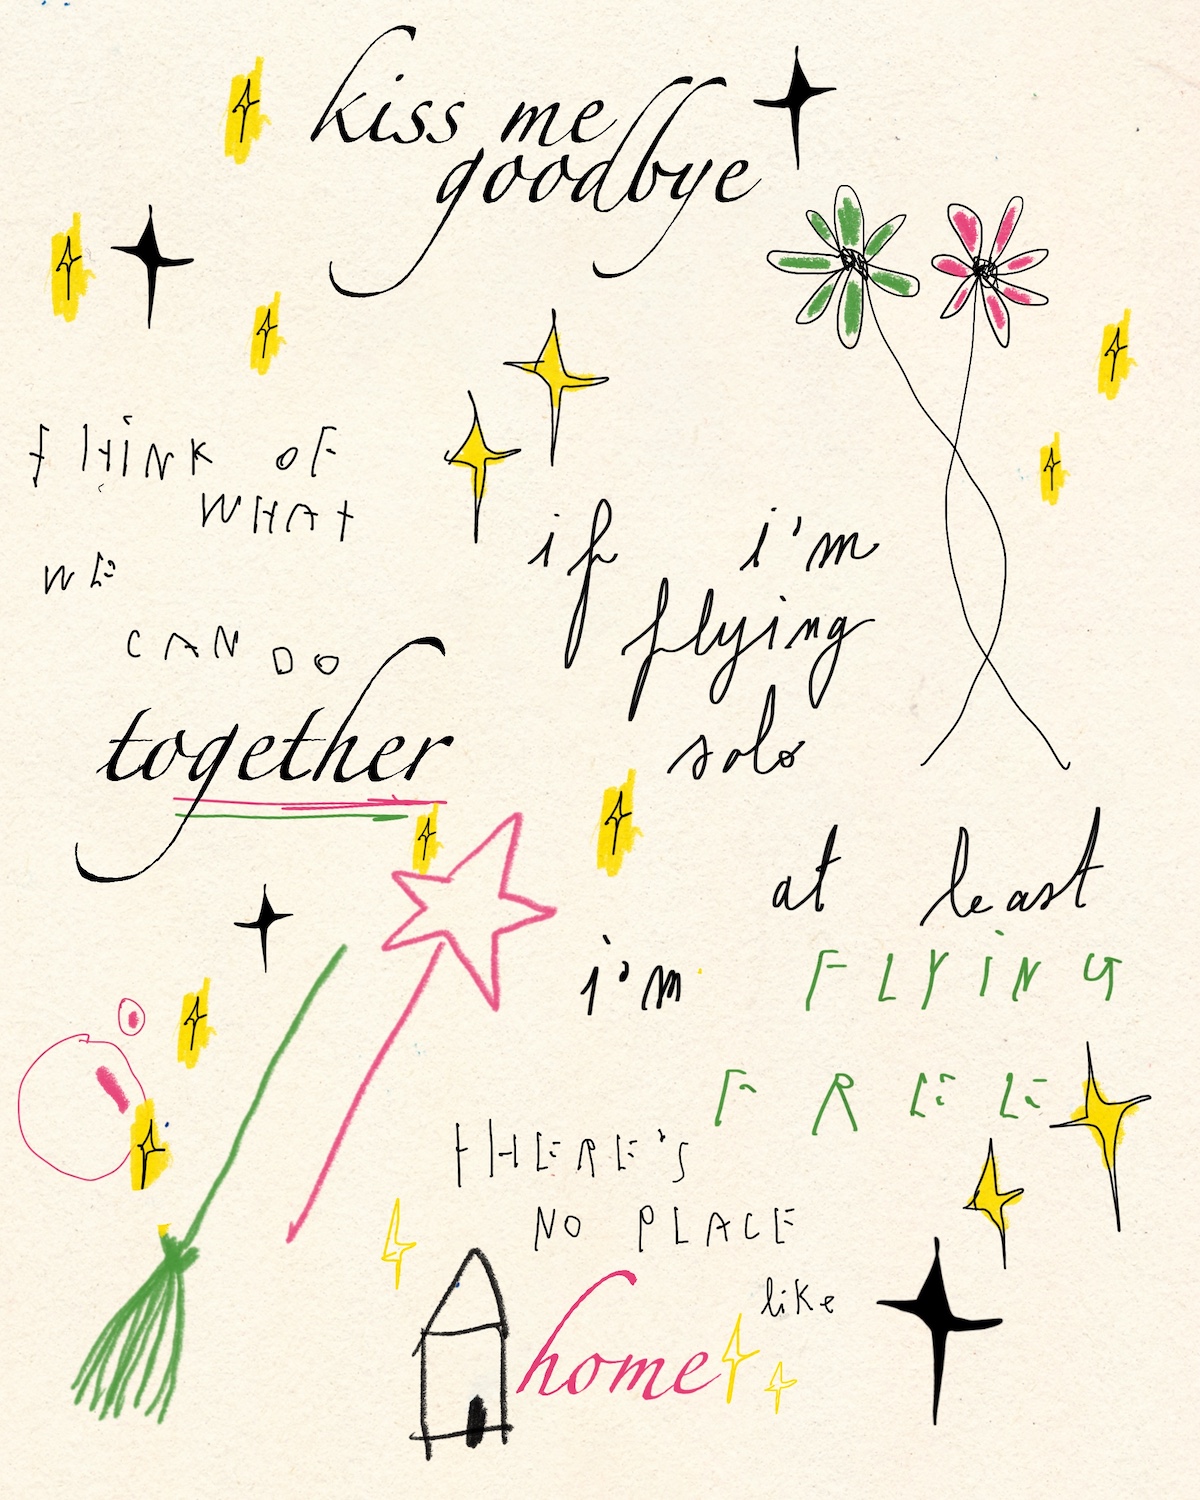 kiss me
goodbye
THiNK OF
WHAT
WE
CAN DO
together
if i'm
flying
solo
at least
i'm FLYiNG
FREE
THERE'S
NO PLACE
like
home